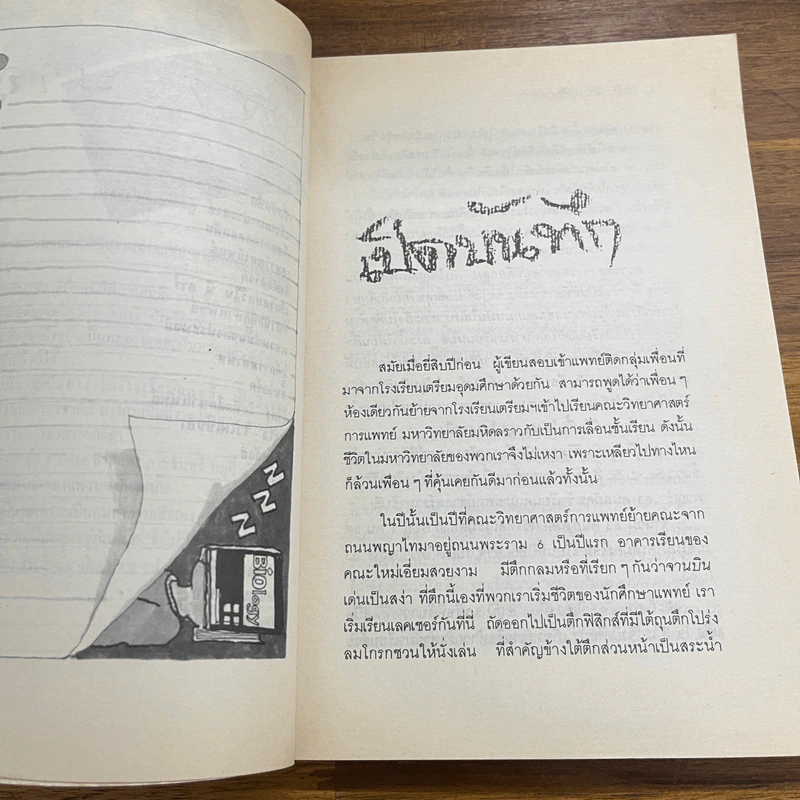 Z Z Z
Biology
เปิดบันทึก
สมัยเมื่อยี่สิบปีก่อน ผู้เขียนสอบเข้าแพทย์ติดกลุ่มเพื่อนที่
มาจากโรงเรียนเตรียมอุดมศึกษาด้วยกัน สามารถพูดได้ว่าเพื่อน ๆ
ห้องเดียวกันย้ายจากโรงเรียนเตรียมฯเข้าไปเรียนคณะวิทยาศาสตร์
การแพทย์ มหาวิทยาลัยมหิดลราวกับเป็นการเลื่อนชั้นเรียน ดังนั้น
ชีวิตในมหาวิทยาลัยของพวกเราจึงไม่เหงา เพราะเหลียวไปทางไหน
ก็ล้วนเพื่อน ๆ ที่คุ้นเคยกันดีมาก่อนแล้วทั้งนั้น
ในปีนั้นเป็นปีที่คณะวิทยาศาสตร์การแพทย์ย้ายคณะจาก
ถนนพญาไทมาอยู่ถนนพระราม 6 เป็นปีแรก อาคารเรียนของ
คณะใหม่เอี่ยมสวยงาม มีตึกกลมหรือที่เรียก ๆ กันว่าจานบิน
เด่นเป็นสง่า ที่ตึกนี้เองที่พวกเราเริ่มชีวิตของนักศึกษาแพทย์ เรา
เริ่มเรียนเลคเชอร์กันที่นี่ ถัดออกไปเป็นตึกฟิสิกส์ที่มีใต้ถุนตึกโปร่ง
ลมโกรกชวนให้นั่งเล่น ที่สำคัญข้างใต้ตึกส่วนหน้าเป็นสระน้ำ